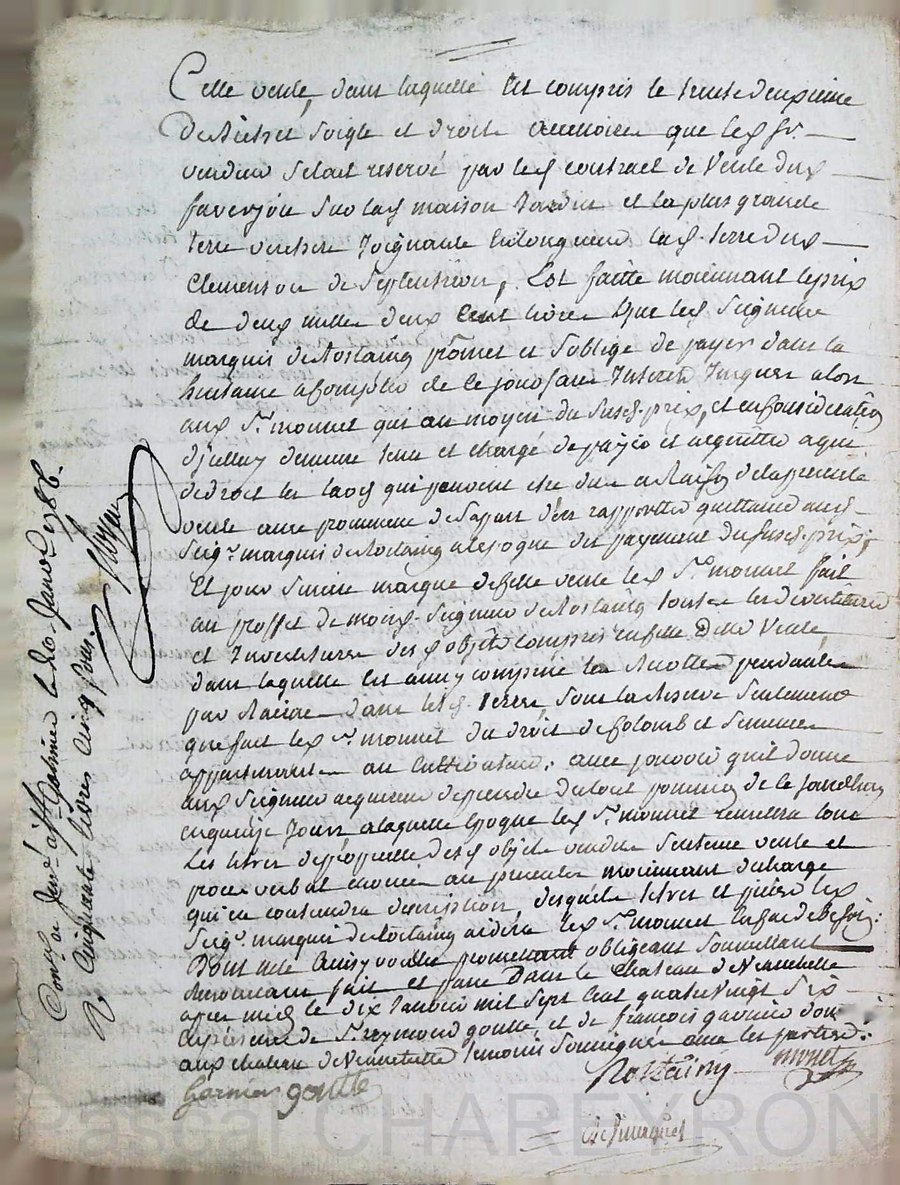 Cette vente, dans laquelle est compris le trente deuxieme
de Bichet soigle et droits accessoires que led sr
vendeur s'etait reservé par led contract de vente dud
faverjon sur lad maison jardin et la plus grande
terre joignante lad. terre dud
Clemenson de septentrion, Est faitte moiennant le prix
de deux mille deux cent livres que led Seigneur
marquis de Rostaing promet et s'oblige de payer dans la
huitaine a compter de ce jour sans interets jusques alors
aud Sr. monnet qui au moyen du susd. prix, et en consideration
d'jcelluy demeure tenu et chargé de payer et acquitter a qui
de droit les laods qui peuvent etre dus a Raison de la presente
vente avec promesse de sa part d'en rapporter quittance aud
Seigr. marquis de Rostaing a l'epoque du payement du susd. prix;
Et pour marque de cette vente led Sr. monnet fait
au proffit de mond. Seigneur de Rostaing toutes les devestitures
et Investitures des objets compris en cette ditte vente,
dans laquelle est aussy comprise les Recoltes pendantes
par Racine dans lesd. terres, sous la Reserve seulement
que fait led Sr. monnet du droit de Colomb et semences
appartenant au cultivateur: avec pouvoir qu'il donne
aud Seigneur acquereur de prendre du tout possession de ce jourd'huy
en quinze jours a laquelle epoque led Sr. monnet remettra tous
les titres de propriete desd objets vendus
procès verbal moiennant décharge
qui en contiendra description desquels titres et pieces led
Seigr. marquis de Rostaing aidera led Sr. monnet en cas de besoin:
Dont acte Ainsy voulu promettant obligeant soumettant
Renonceant fait et passé Dans le chateau de Veauchette
apres midy le dix janvier mil sept cent quatre vingt six
En presence de Sr. reymond goutte, et de francois garnier
aud chateau de Veauchette temoins soussignés avec les parties:
Rostaing monet
Garnier goutte
Pascal CHAREYRON
Conlé a St. Galmier le 20 Janvr. 1786.
R cinquante livres cinq sous.